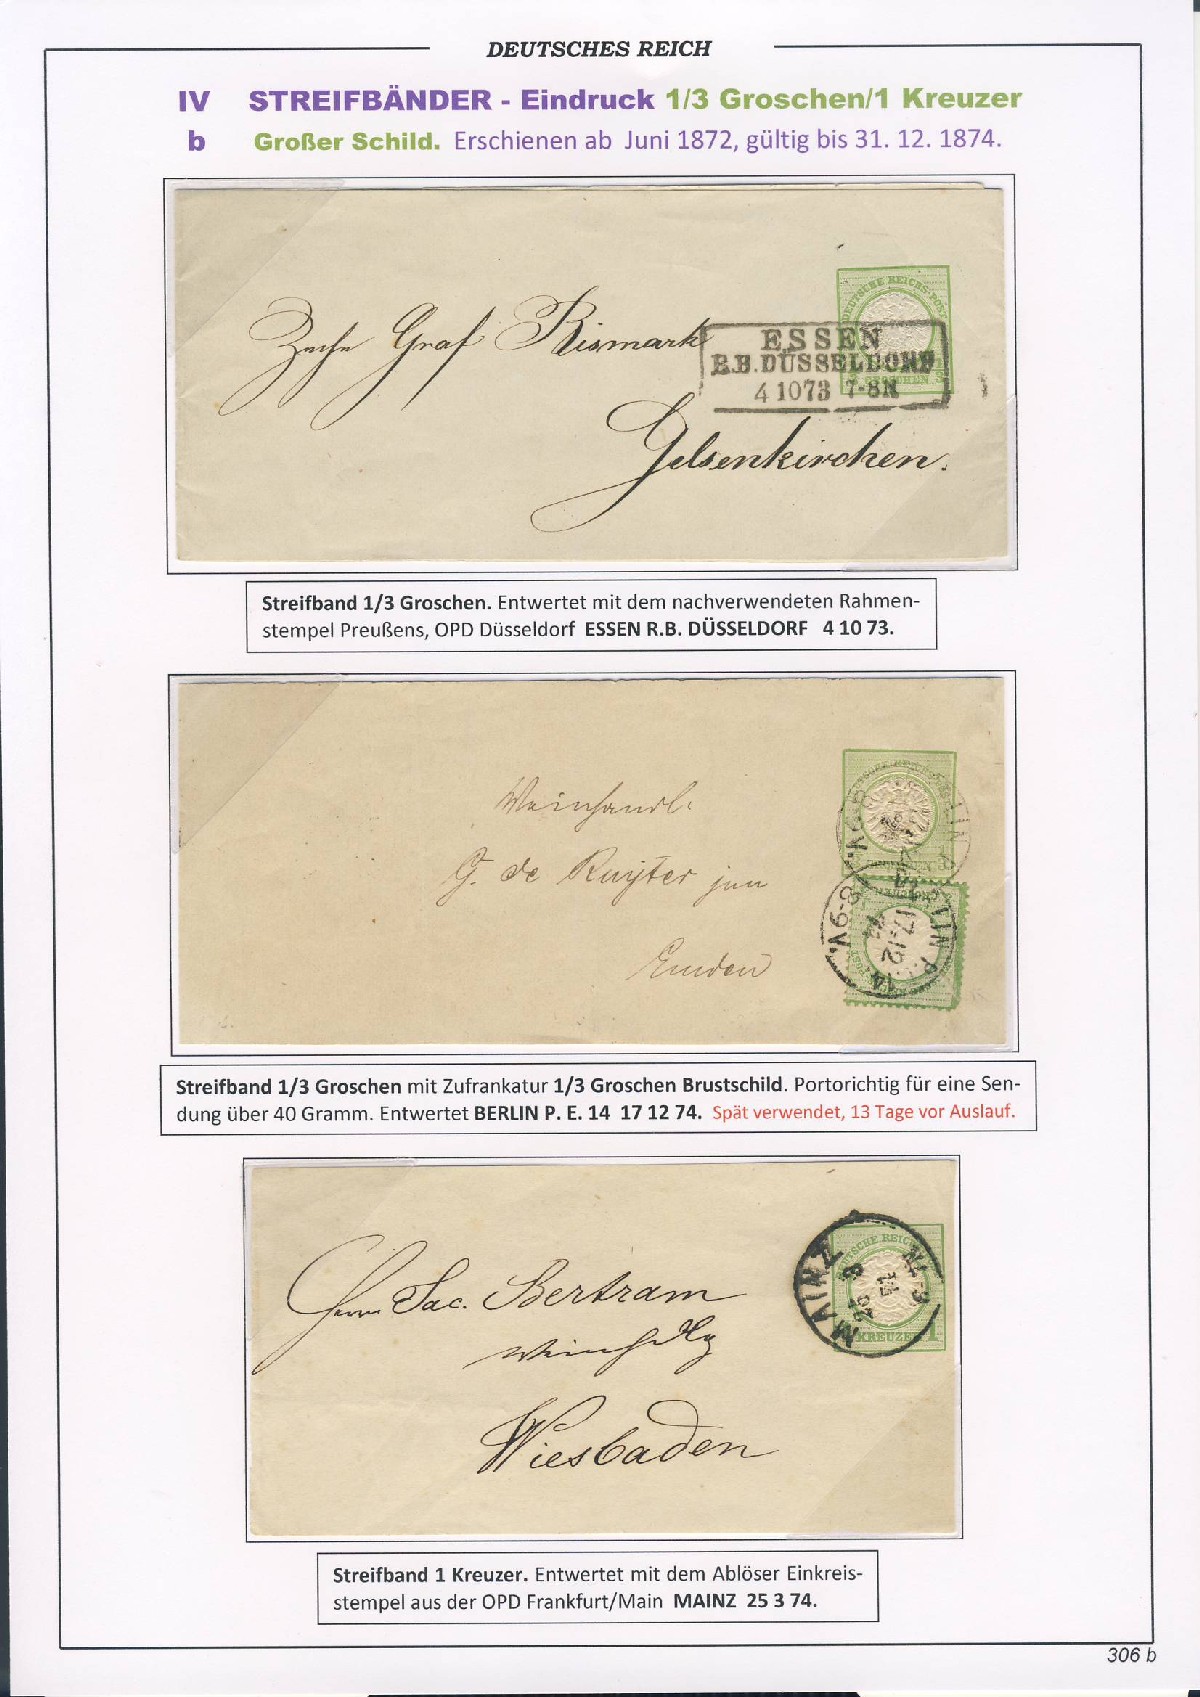 DEUTSCHES REICH
IV STREIFBÄNDER - Eindruck 1/3 Groschen/1 Kreuzer
b Großer Schild. Erschienen ab Juni 1872, gültig bis 31. 12. 1874.
DEUTSCHE REICHS-POST
Zeche Graf Bismark
ESSEN
R.B. DÜSSELDORF
4 10 73 7-8N
GROSCHEN
Gelsenkirchen.
Streifband 1/3 Groschen. Entwertet mit dem nachverwendeten Rahmen-
stempel Preußens, OPD Düsseldorf ESSEN R.B. DÜSSELDORF 4 10 73.
Weinhandl.
G. de Ruyter jun
Emden
17 12
74
8-9V.
Streifband 1/3 Groschen mit Zufrankatur 1/3 Groschen Brustschild. Portorichtig für eine Sen-
dung über 40 Gramm. Entwertet BERLIN P. E. 14 17 12 74. Spät verwendet, 13 Tage vor Auslauf.
DEUTSCHE REICHS
MAINZ
25 3
KREUZER 1
Herrn Jac. Bertram
Wiesbaden
Streifband 1 Kreuzer. Entwertet mit dem Ablöser Einkreis-
stempel aus der OPD Frankfurt/Main MAINZ 25 3 74.
306 b